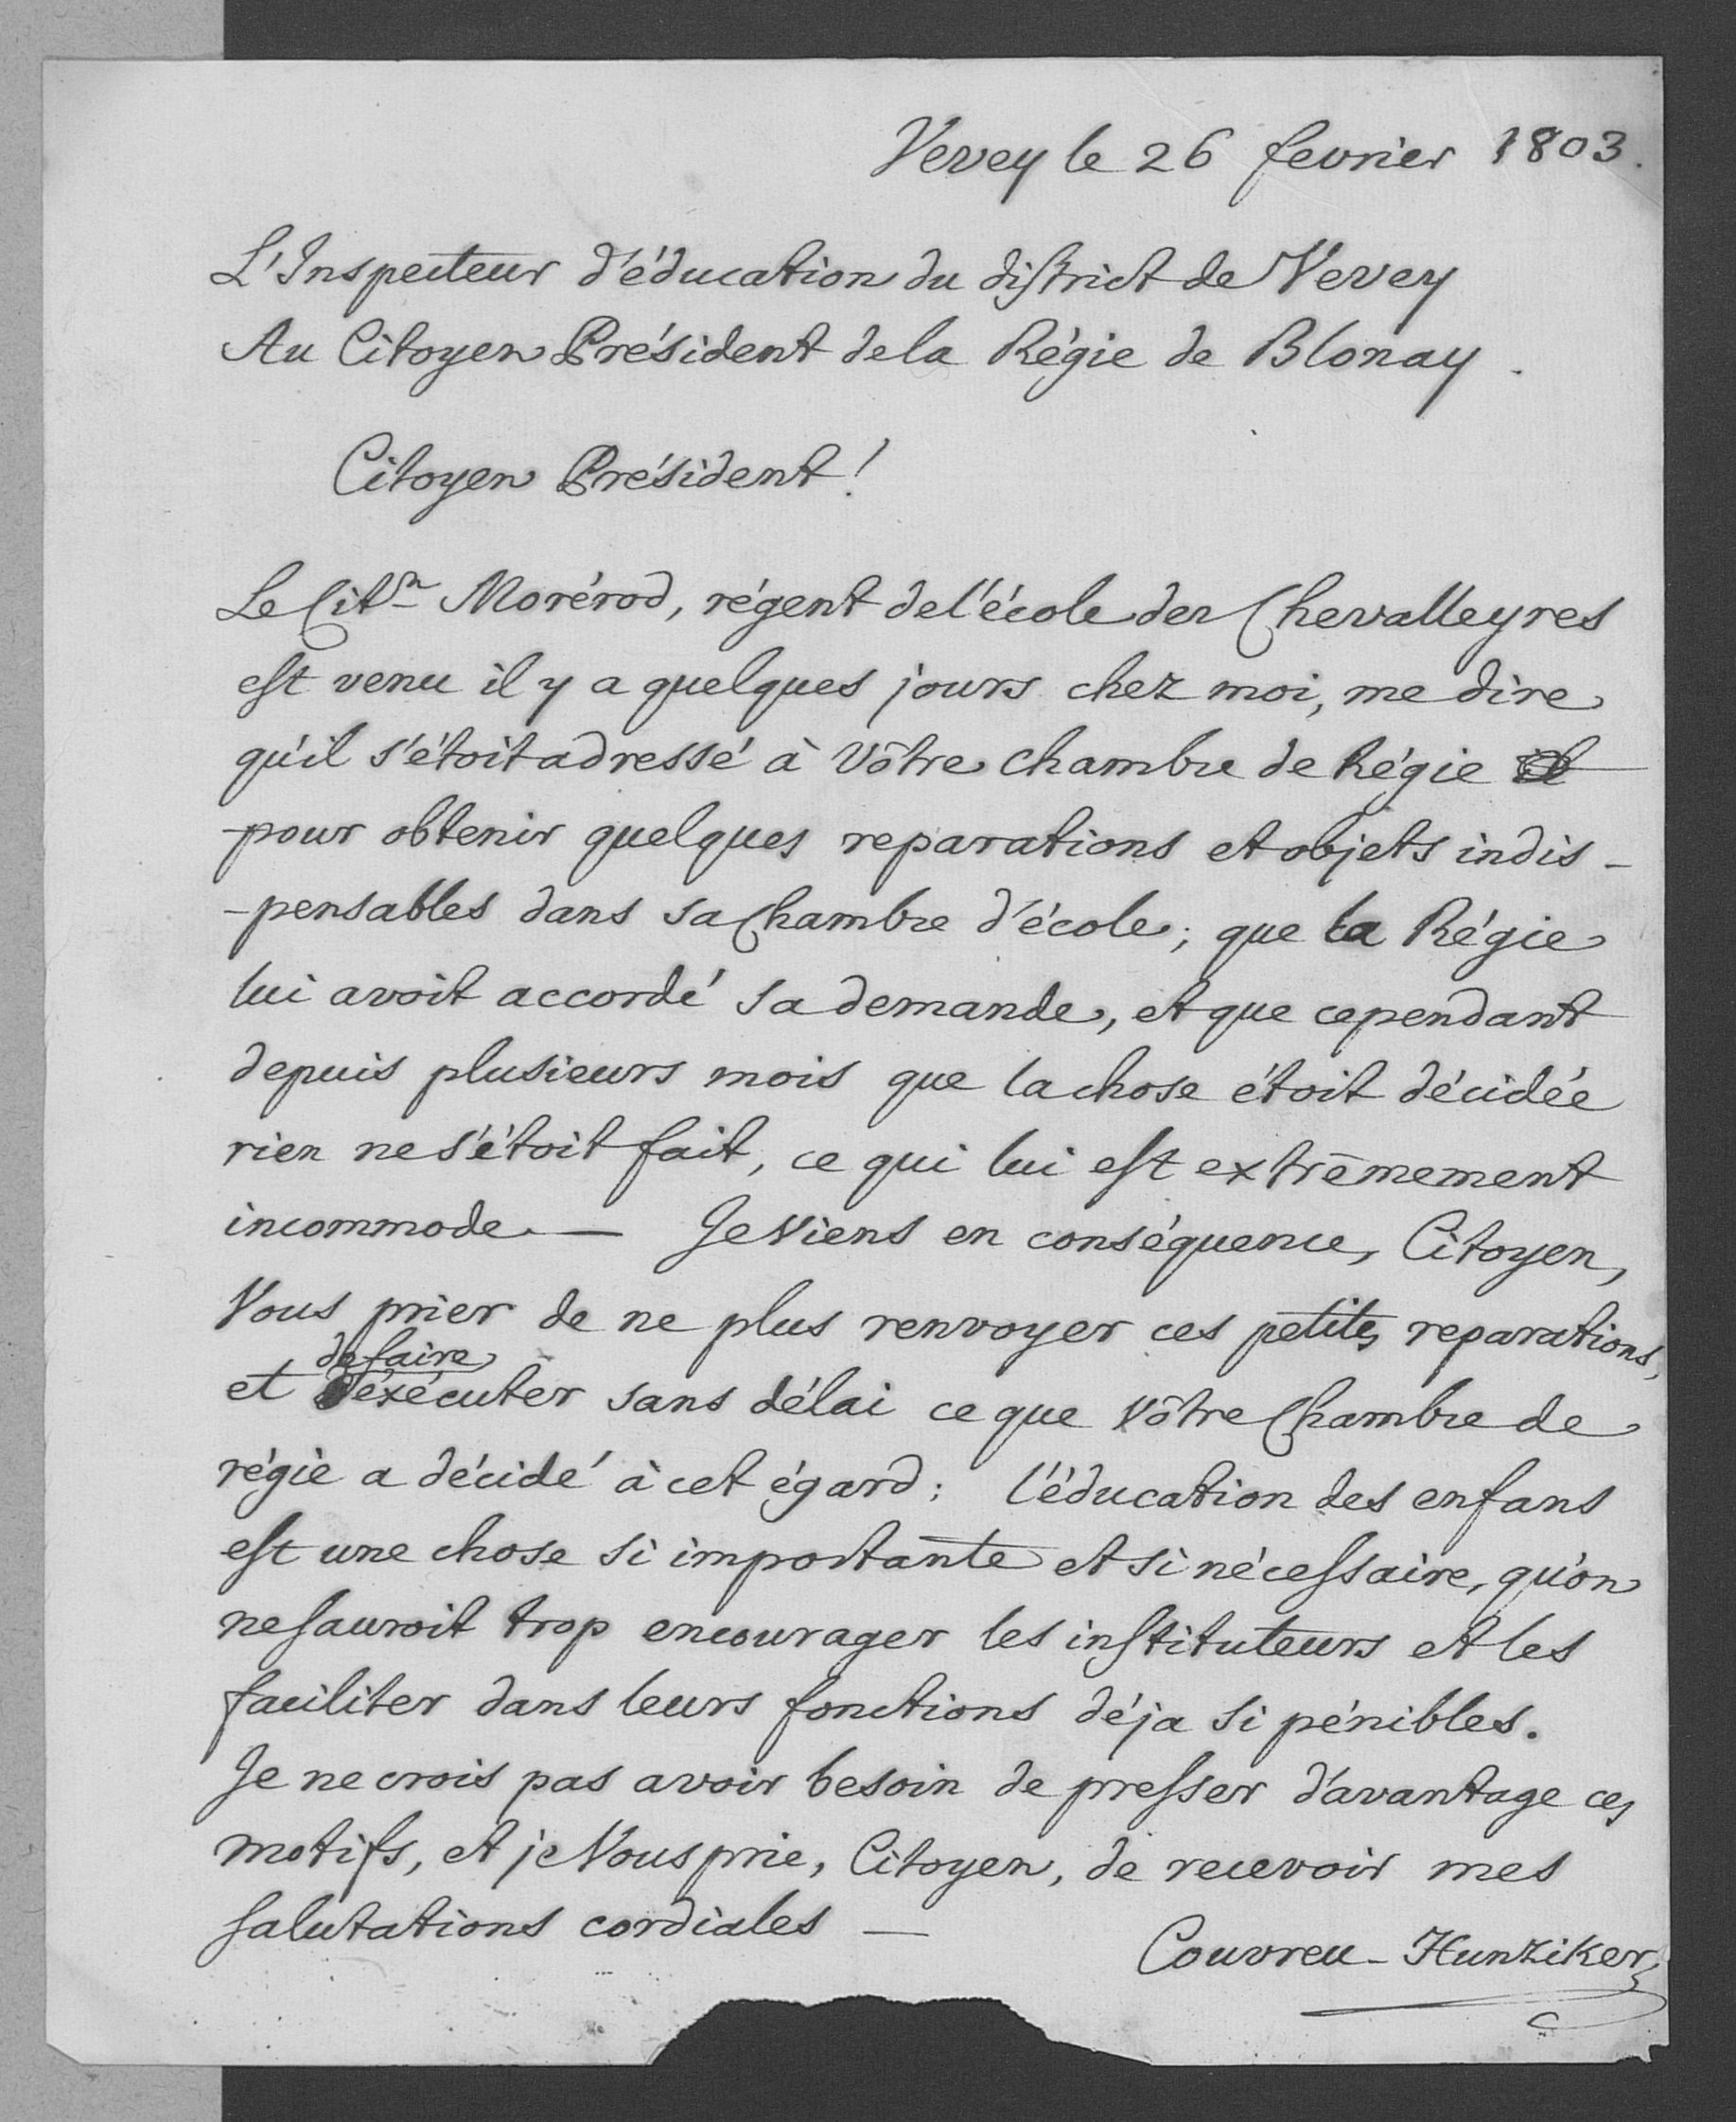 Vevey le 26 fevrier 1803.
L'Inspecteur d'éducation du district de Vevey
Au Citoyen Président de la Régie de Blonay.
Citoyen Président!
Le Cit.n Morérod, régent de l'école des Chevalleyres
est venu il y a quelques jours chez moi, me dire
qu'il s'étoit adressé à Vôtre chambre de Régie
pour obtenir quelques reparations et objets indis-
-pensables dans sa Chambre d'école; que la Régie
lui avoit accordé sa demande, et que cependant
depuis plusieurs mois que la chose étoit décidée
rien ne s'étoit fait, ce qui lui est extrêmement
incommode. — Je Viens en conséquence, Citoyen,
Vous prier de ne plus renvoyer ces petites reparations,
de faire
et éxécuter sans délai ce que Vôtre Chambre de
régie a décidé à cet égard; l'éducation des enfans
est une chose si importante et si nécessaire, qu'on
ne sauroit trop encourager les instituteurs et les
faciliter dans leurs fonctions déja si pénibles.
Je ne crois pas avoir besoin de presser d'avantage ces
motifs, et je Vous prie, Citoyen, de recevoir mes
salutations cordiales —
Couvreu-Hunziker